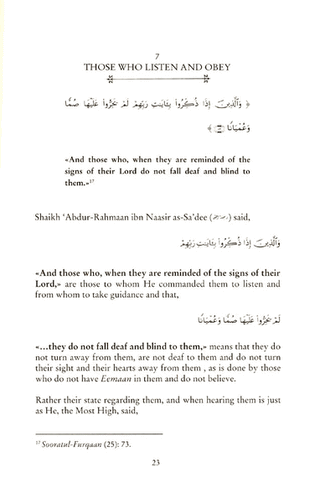 7
THOSE WHO LISTEN AND OBEY
﴿ وَالَّذِينَ إِذَا ذُكِّرُوا بِآيَاتِ رَبِّهِمْ لَمْ يَخِرُّوا عَلَيْهَا صُمًّا
وَعُمْيَانًا ﴾
«And those who, when they are reminded of the
signs of their Lord do not fall deaf and blind to
them.»¹⁷
Shaikh ‘Abdur-Rahmaan ibn Naasir as-Sa’dee () said,
وَالَّذِينَ إِذَا ذُكِّرُوا بِآيَاتِ رَبِّهِمْ
«And those who, when they are reminded of the signs of their
Lord,» are those to whom He commanded them to listen and
from whom to take guidance and that,
لَمْ يَخِرُّوا عَلَيْهَا صُمًّا وَعُمْيَانًا
«...they do not fall deaf and blind to them,» means that they do
not turn away from them, are not deaf to them and do not turn
their sight and their hearts away from them , as is done by those
who do not have Eemaan in them and do not believe.
Rather their state regarding them, and when hearing them is just
as He, the Most High, said,
¹⁷ Sooratul-Furqaan (25): 73.
23